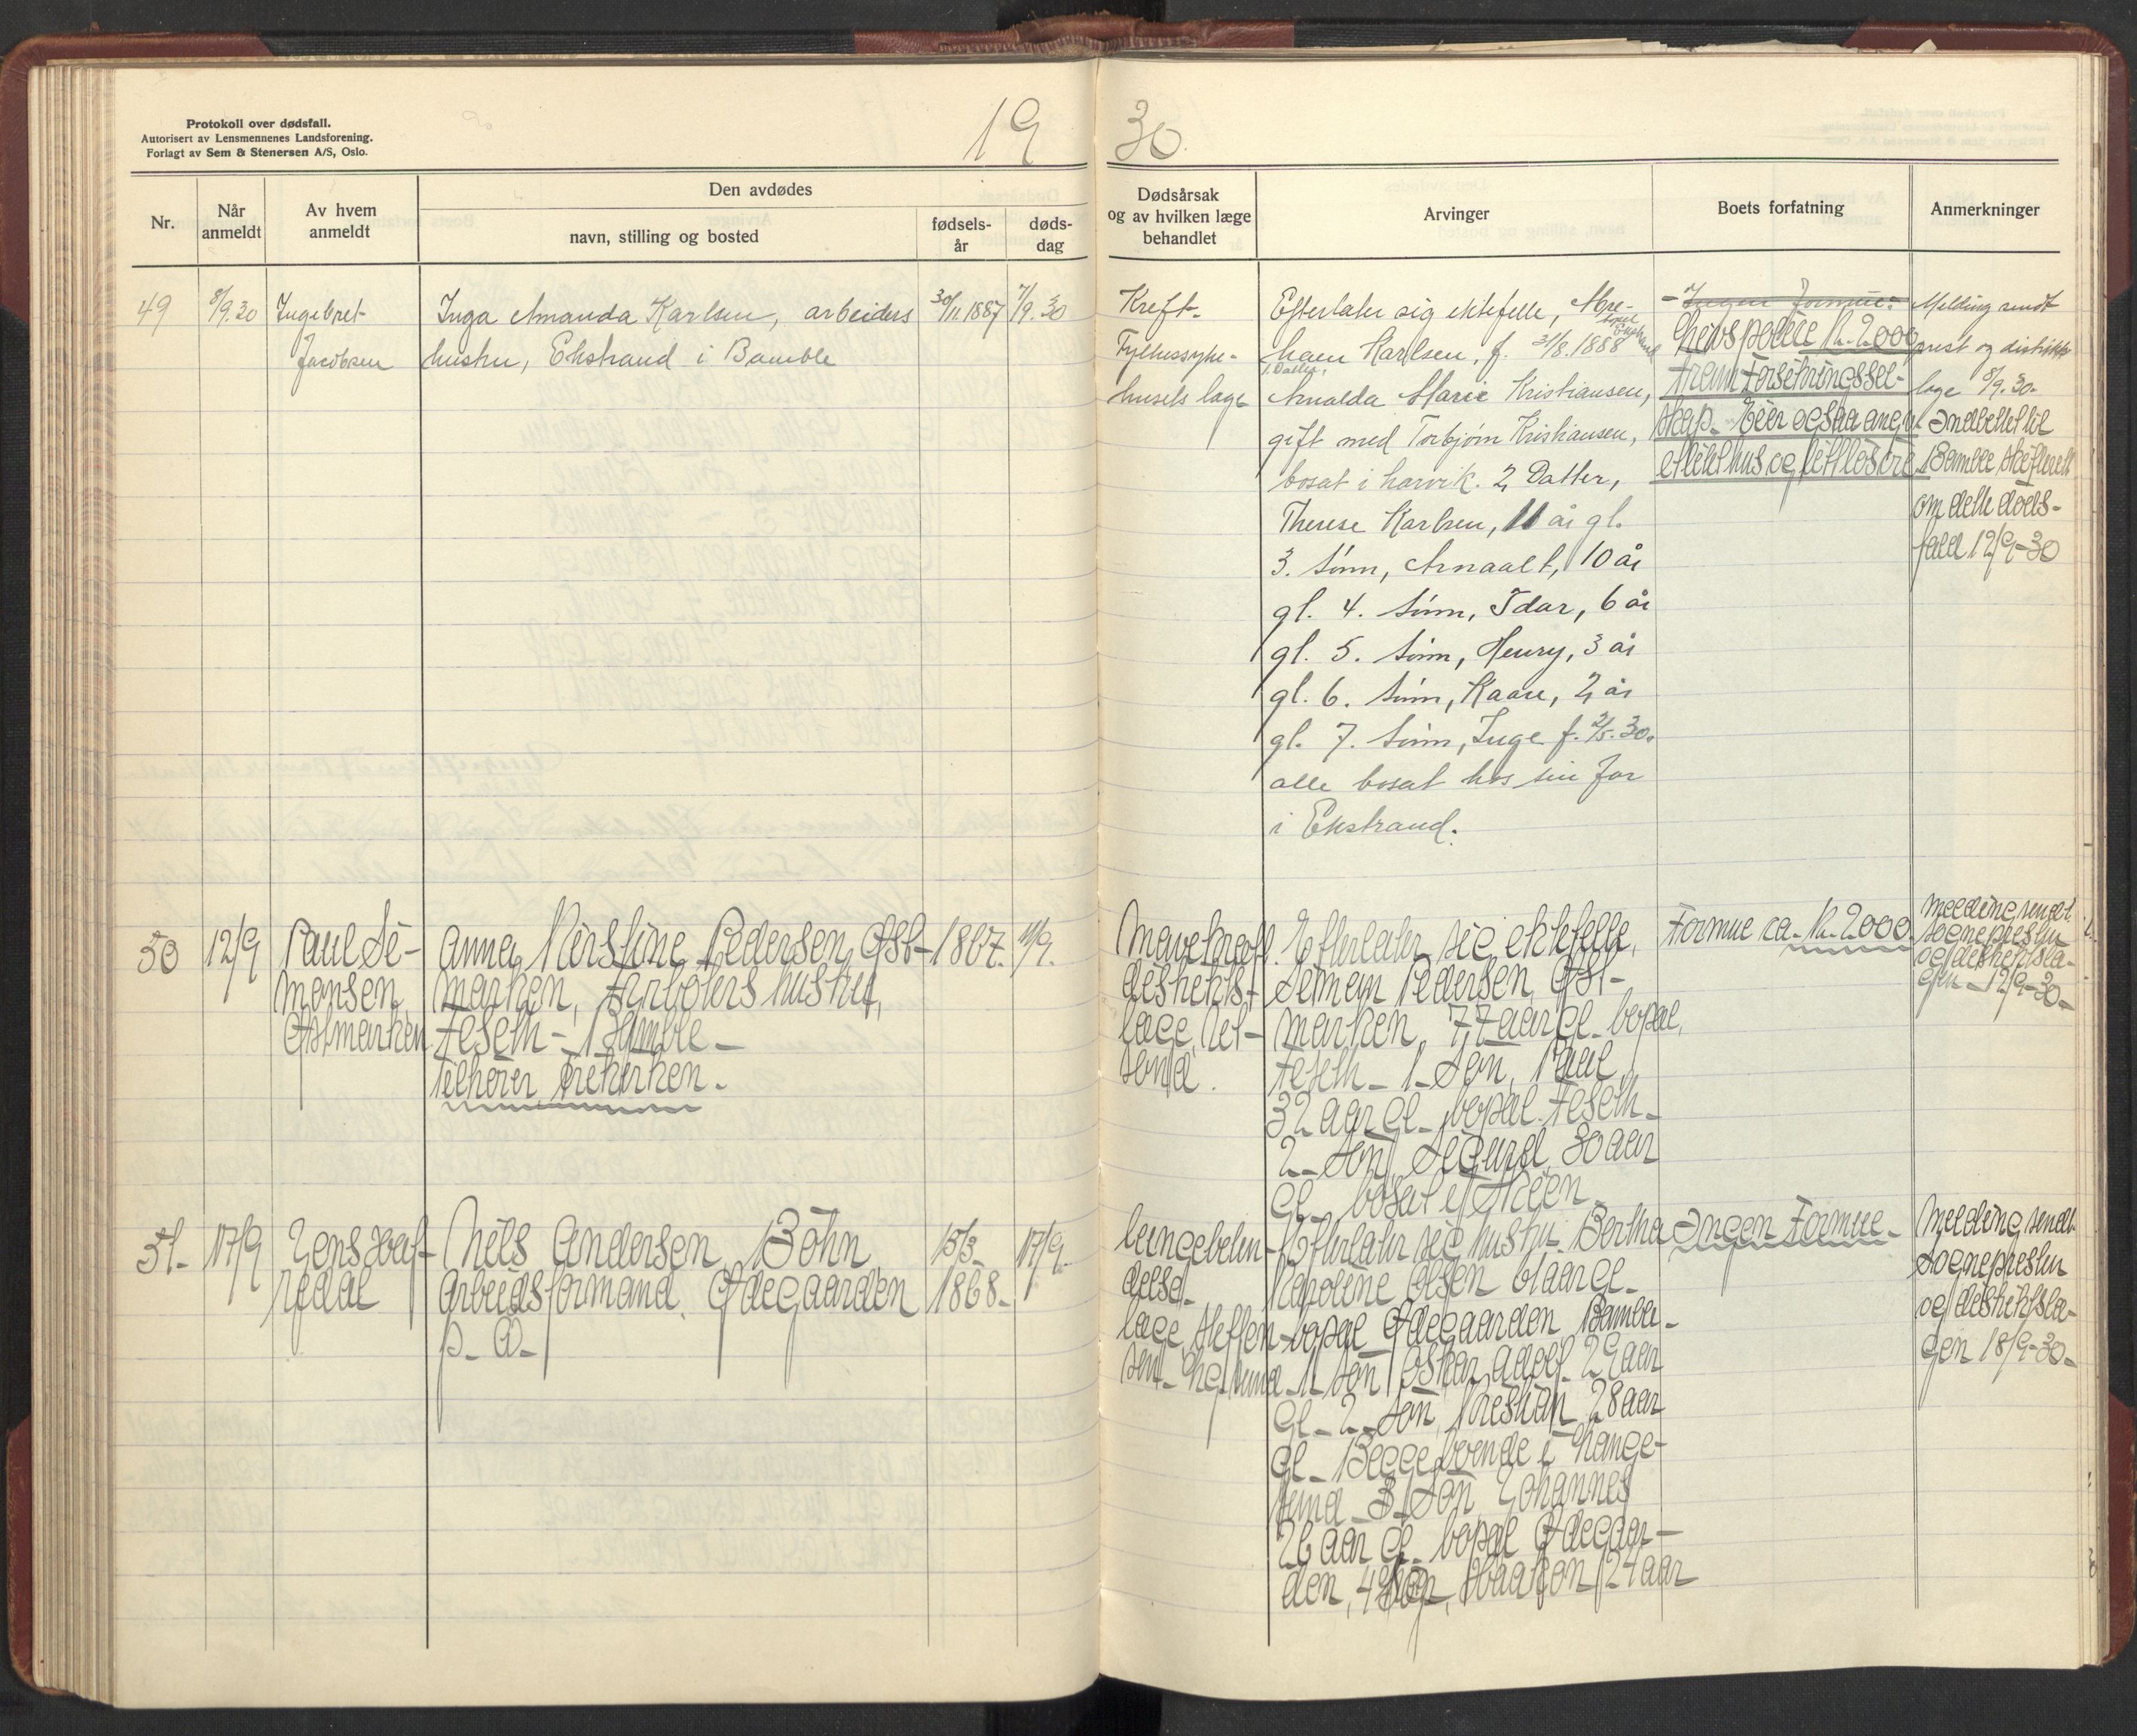 Protokoll over dødsfall.
Autorisert av Lensmennenes Landsforening.
Forlagt av Sem & Stenersen A/S, Oslo.
19
30.
Nr.
Når
anmeldt
Av hvem
anmeldt
Den avdødes
navn, stilling og bosted
fødsels-
år
døds-
dag
Dødsårsak
og av hvilken læge
behandlet
Arvinger
Boets forfatning
Anmerkninger
49
8/9.30
Ingebret
Jacobsen
Inga Amanda Karlsen, arbeiders
hustru, Ekstrand i Bamble
30/11.1887
7/9.30
Kreft.
Fylkessyke-
husets læge
Efterlater sig ektefelle, Abra-
ham Karlsen, f. 31/8.1888
1. Datter,
Amalda Marie Kristiansen,
gift med Torbjørn Kristiansen,
bosat i Larvik. 2, Datter,
Therese Karlsen, 11 år gl.
3. Sönn, Arnaalt, 10 år
gl. 4. Sönn, Idar, 6 år
gl. 5. Sönn, Henry, 3 år
gl. 6. Sönn, Kaare, 2, år
gl. 7. Sönn, Inge f. 2/5.30.
alle bosat hos sin far
i Ekstrand.
- Ingen Formue -
Livspolice k. 2000
Fram Forsikringssel-
skap. Eier ogsaa
et litet hus og litt løsøre
Melding sendt
prest og distrikts
læge 8/9.30.
Indbettet til
Bamble skifterett
om dette døds-
fald 12/9-30
50
12/9
Paul Si-
monsen
Østmarken
Anna Kirstine Pedersen, Øst-
marken, Farbikers hustru,
Feseth - Bamble -
tilhører Frikirken.
1867.
11/9.
Mavekreft.
distrikts-
læge, Sel-
sond.
Efterlater sig ektefelle,
Simon Pedersen, Øst-
marken, 77 aar gl. bopæl,
Feseth - 1. Søn, Paul,
32 aar gl. bopæl Feseth -
2. Søn, Sigurd, 30 aar
gl. bosat i Skien
Formue ca. k. 2000
Melding sendt
sognepresten
og distriktslæ-
gen - 12/9-30 -
51.
17/9
Jens Haf-
redal
Nils Andersen Bøhn
Arbeidsformand, Ødegaarden
p. a.
15/3.
1868.
17/9.
Lungebeten-
delse.
læge, Steffen-
sen. Langesund
Efterlater sig hustru Bertha
Karoline Olsen 61 aar gl.
bopæl Ødegaarden Bamble -
1. søn Oskar Adolf 29 aar
gl. 2. Søn, Kristian, 28 aar
gl. Begge boende i Lange-
sund. 3. Søn, Johannes
26 aar gl. bopæl Ødegaar-
den, 4. Søn, Haakon, 24 aar
Ingen Formue -
Melding sendt
Sognepresten
og distriktslæ-
gen 18/9-30 -